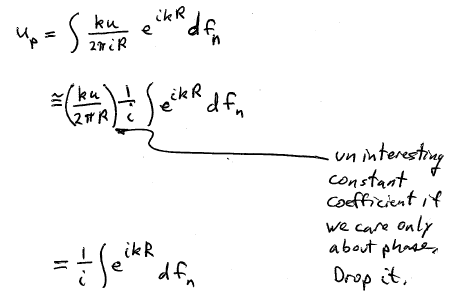 u_p = ∫ ku/2πiR e^{ikR} df_n
≅ (ku/2πR) 1/i ∫ e^{ikR} df_n
un interesting
constant
coefficient if
we care only
about phase.
Drop it.
= 1/i ∫ e^{ikR} df_n